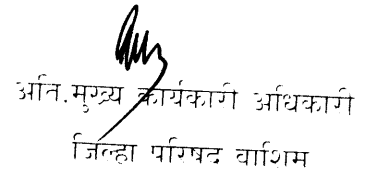 अति.मुख्य कार्यकारी अधिकारी
जिल्हा परिषद वाशिम